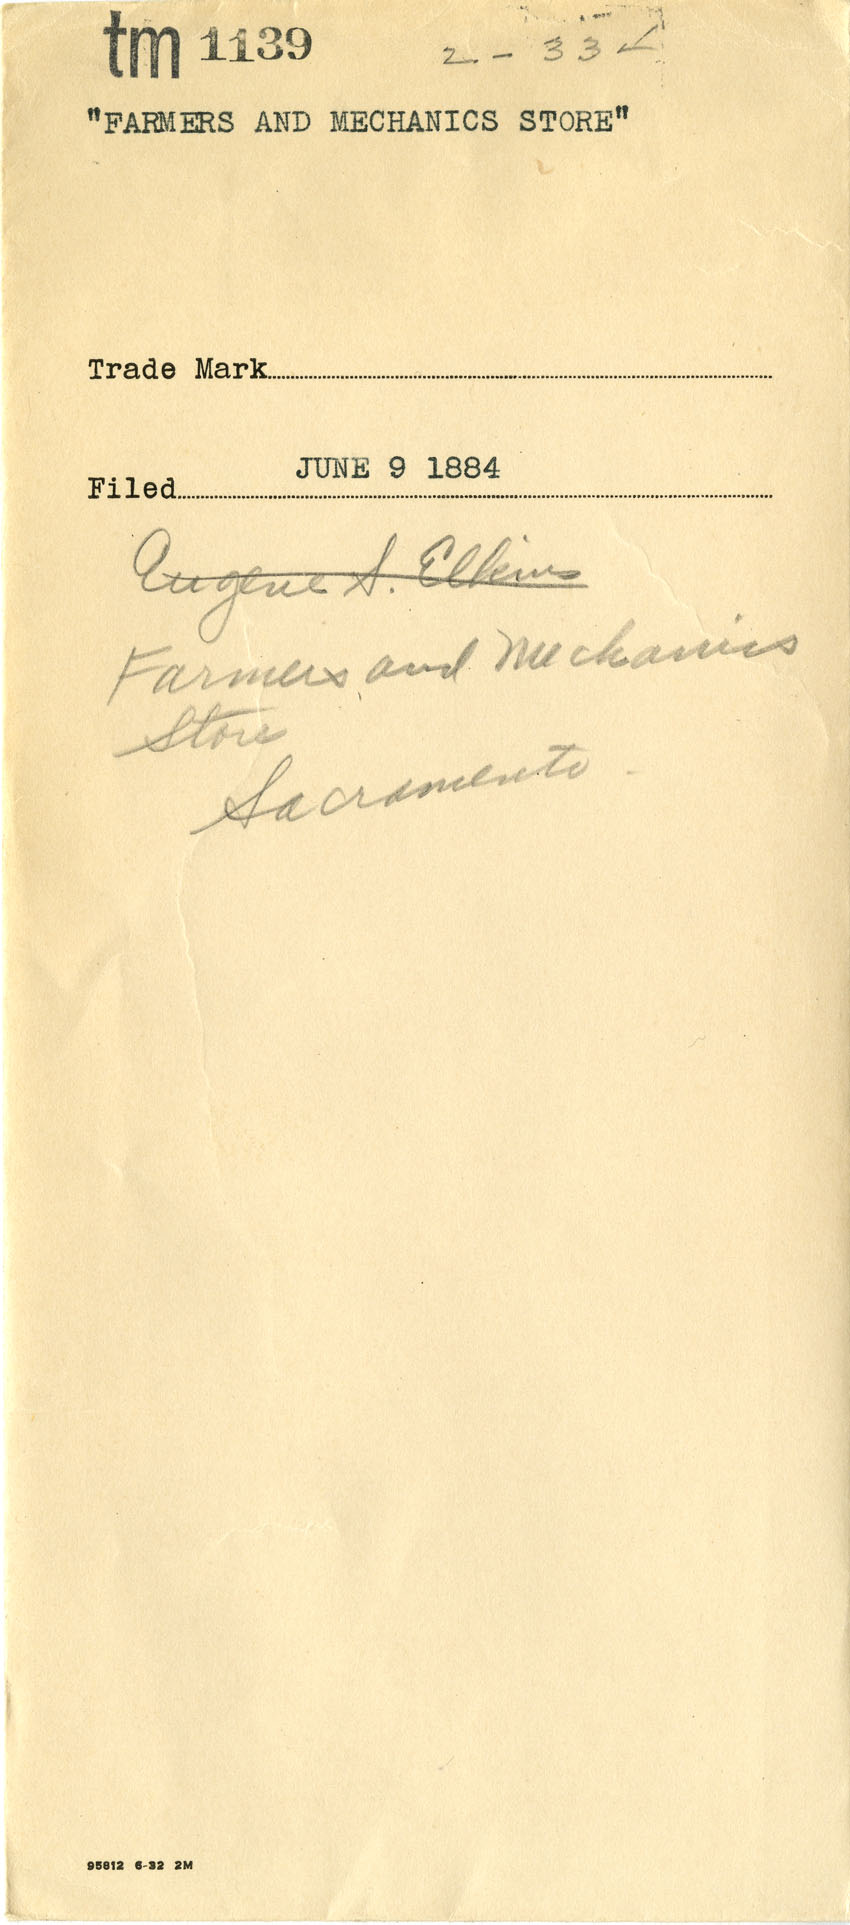 tm 1139 2-332
"FARMERS AND MECHANICS STORE"
Trade Mark
JUNE 9 1884
Filed
Eugene S. Elkins
Farmers and Mechanics
Store
Sacramento
95812 6-32 2M